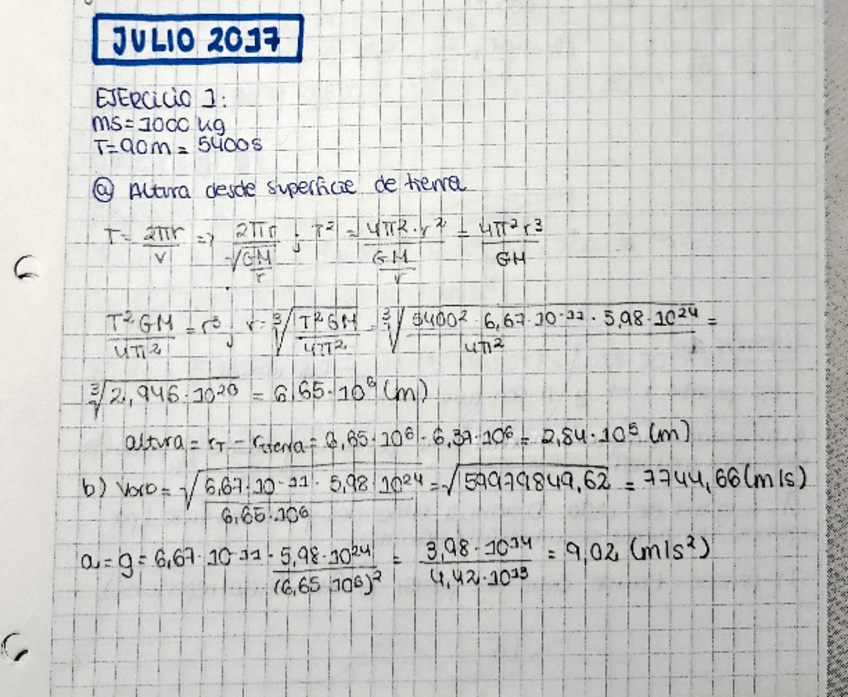 JULIO 2017
EJERCICIO 1:
ms = 1000 kg
T = 90m = 5400s
ⓐ Altura desde superficie de tierra
T = 2πr/v => 2πr/√(GM/r) ; T² = 4π²·r²/(GM/r) = 4π²r³/GM
T²GM/4π² = r³, r = ∛(T²GM/4π²) = ∛(5400² · 6,67·10⁻¹¹ · 5,98·10²⁴/4π²) =
∛(2,946·10²⁰) = 6,65·10⁶ (m)
altura = r_T - r_tierra = 6,65·10⁶ - 6,37·10⁶ = 2,84·10⁵ (m)
b) Vorb = √(6,67·10⁻¹¹ · 5,98·10²⁴/6,65·10⁶) = √59979849,62 = 7744,66 (m/s)
a = g = 6,67·10⁻¹¹ · 5,98·10²⁴/(6,65·10⁶)² = 3,98·10¹⁴/4,42·10¹³ = 9,02 (m/s²)